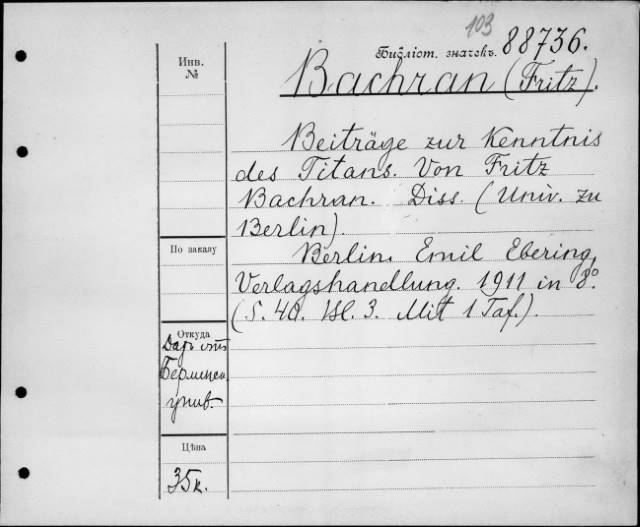 103
Библіот. значекъ. 88736.
Инв.
№
Bachran (Fritz).
Beiträge zur Kenntnis
des Titans. Von Fritz
Bachran. Diss. (Univ. zu
Berlin).
По заказу
Berlin. Emil Ebering,
Verlagshandlung. 1911 in 8º.
(S. 40. Bl. 3. Mit 1 Taf.).
Откуда
Даръ отъ
Берлинск.
унив.
Цѣна
35к.